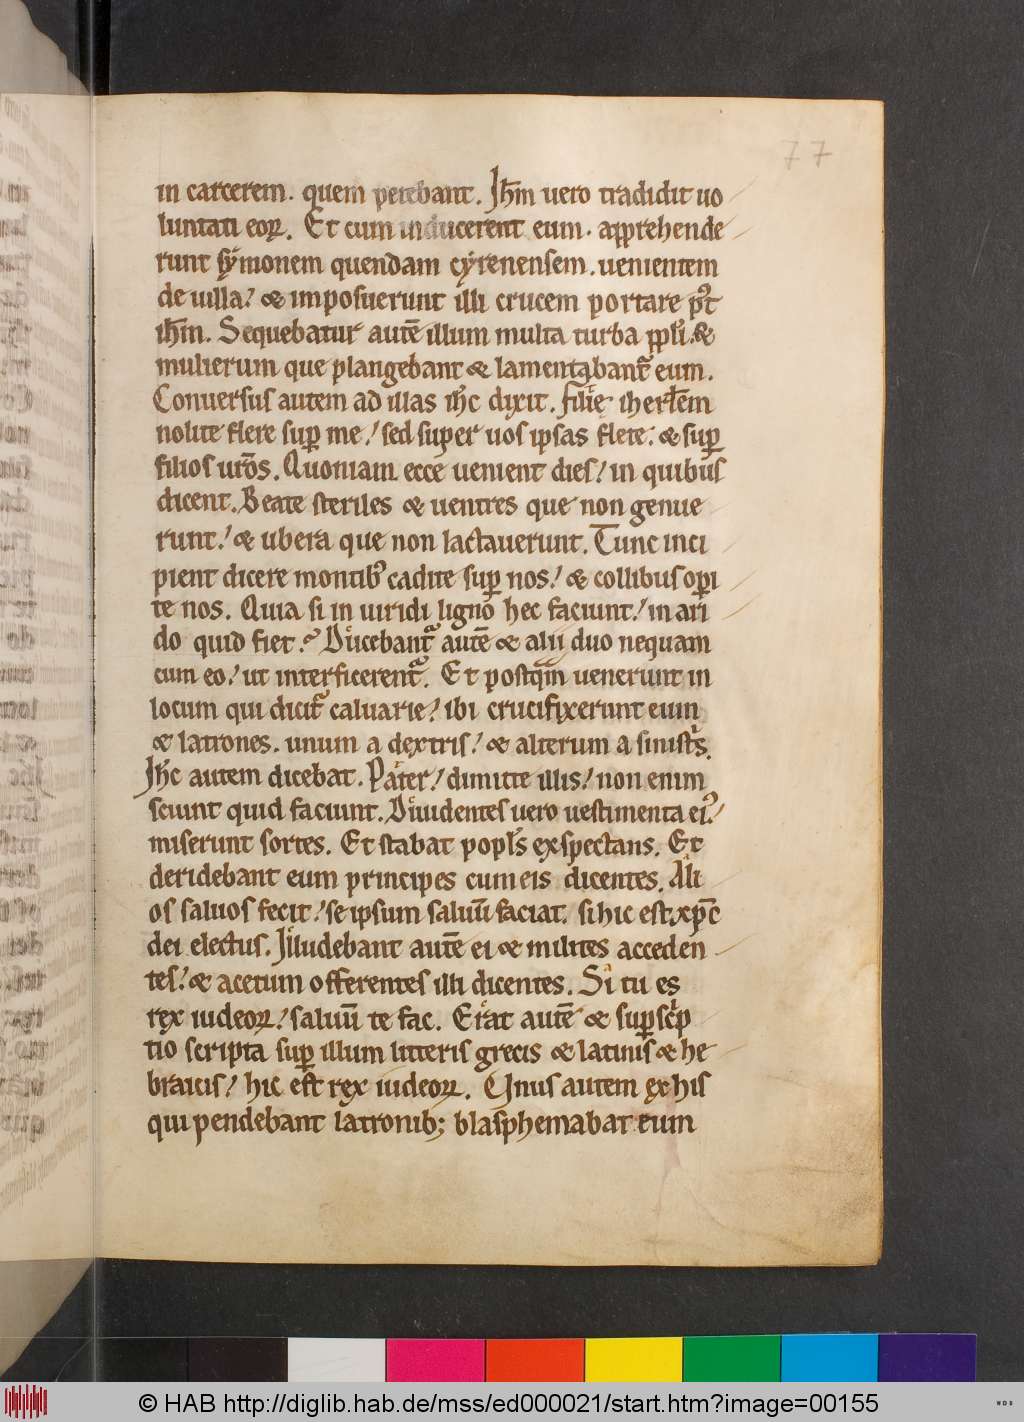 77
in carcerem. quem petebant. Ihm̄ uero tradidit uo
luntati eoꝝ. Et cum inducerent eum. apprehende
runt sẏmonem quendam cẏrenensem. uenientem
de uilla / & imposuerunt illi crucem portare pꝰt
ihm̄. Sequebatur autē illum multa turba ppl̓i. &
mulierum que plangebant & lamentabant᷑ eum.
Conuersus autem ad illas ihc̄ dixit. filię iherłem
nolite flere suꝑ me / sed super uos ipsas flete. & suꝑ
filios ur̄os. Quoniam ecce uenient dies / in quibus
dicent. Beate steriles & uentres que non genue
runt / & ubera que non lactauerunt. Tunc inci
pient dicere montibꝰ cadite suꝑ nos / & collibus oꝑi
te nos. Quia si in uiridi ligno hec faciunt / in ari
do quid fiet? Ducebant᷑ autē & alii duo nequam
cum eo / ut interficerent᷑. Et postqm̄ uenerunt in
locum qui dicit᷑ caluarie / ibi crucifixerunt eum
& latrones. unum a dextris / & alterum a sinist̓s.
Ihc̄ autem dicebat. Pater / dimitte illis / non enim
sciunt quid faciunt. Diuidentes uero uestimenta eiꝰ /
miserunt sortes. Et stabat popl̓s exspectans. Et
deridebant eum principes cum eis dicentes. Ali
os saluos fecit / se ipsum saluū faciat. si hic est xp̄c
dei electus. Illudebant autē ei & milites acceden
tes / & acetum offerentes illi dicentes. Si tu es
rex iudeoꝝ / saluū te fac. Erat autē & suꝑsc̓p
tio scripta suꝑ illum litteris grecis & latinis & he
braicis / hic est rex iudeoꝝ. Unus autem ex his
qui pendebant latronib; blasphemabat eum
© HAB http://diglib.hab.de/mss/ed000021/start.htm?image=00155